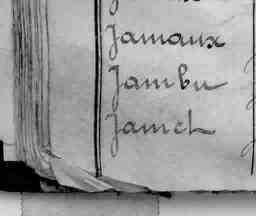 Jamaux
Jambu
Jamet